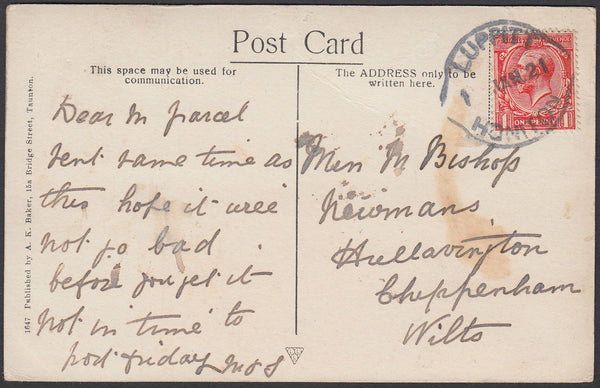 Post Card
This space may be used for
communication.
The ADDRESS only to be
written here.
LUPPITT
JAN 21
HONITON
ONE PENNY
Dear M parcel
sent same time as
this hope it will
not go bad
before you get it
not in time to
post friday M S
Miss M Bishop
Newmans
Hullavington
Chippenham
Wilts
1647 Published by A. K. Baker, 15a Bridge Street, Taunton.